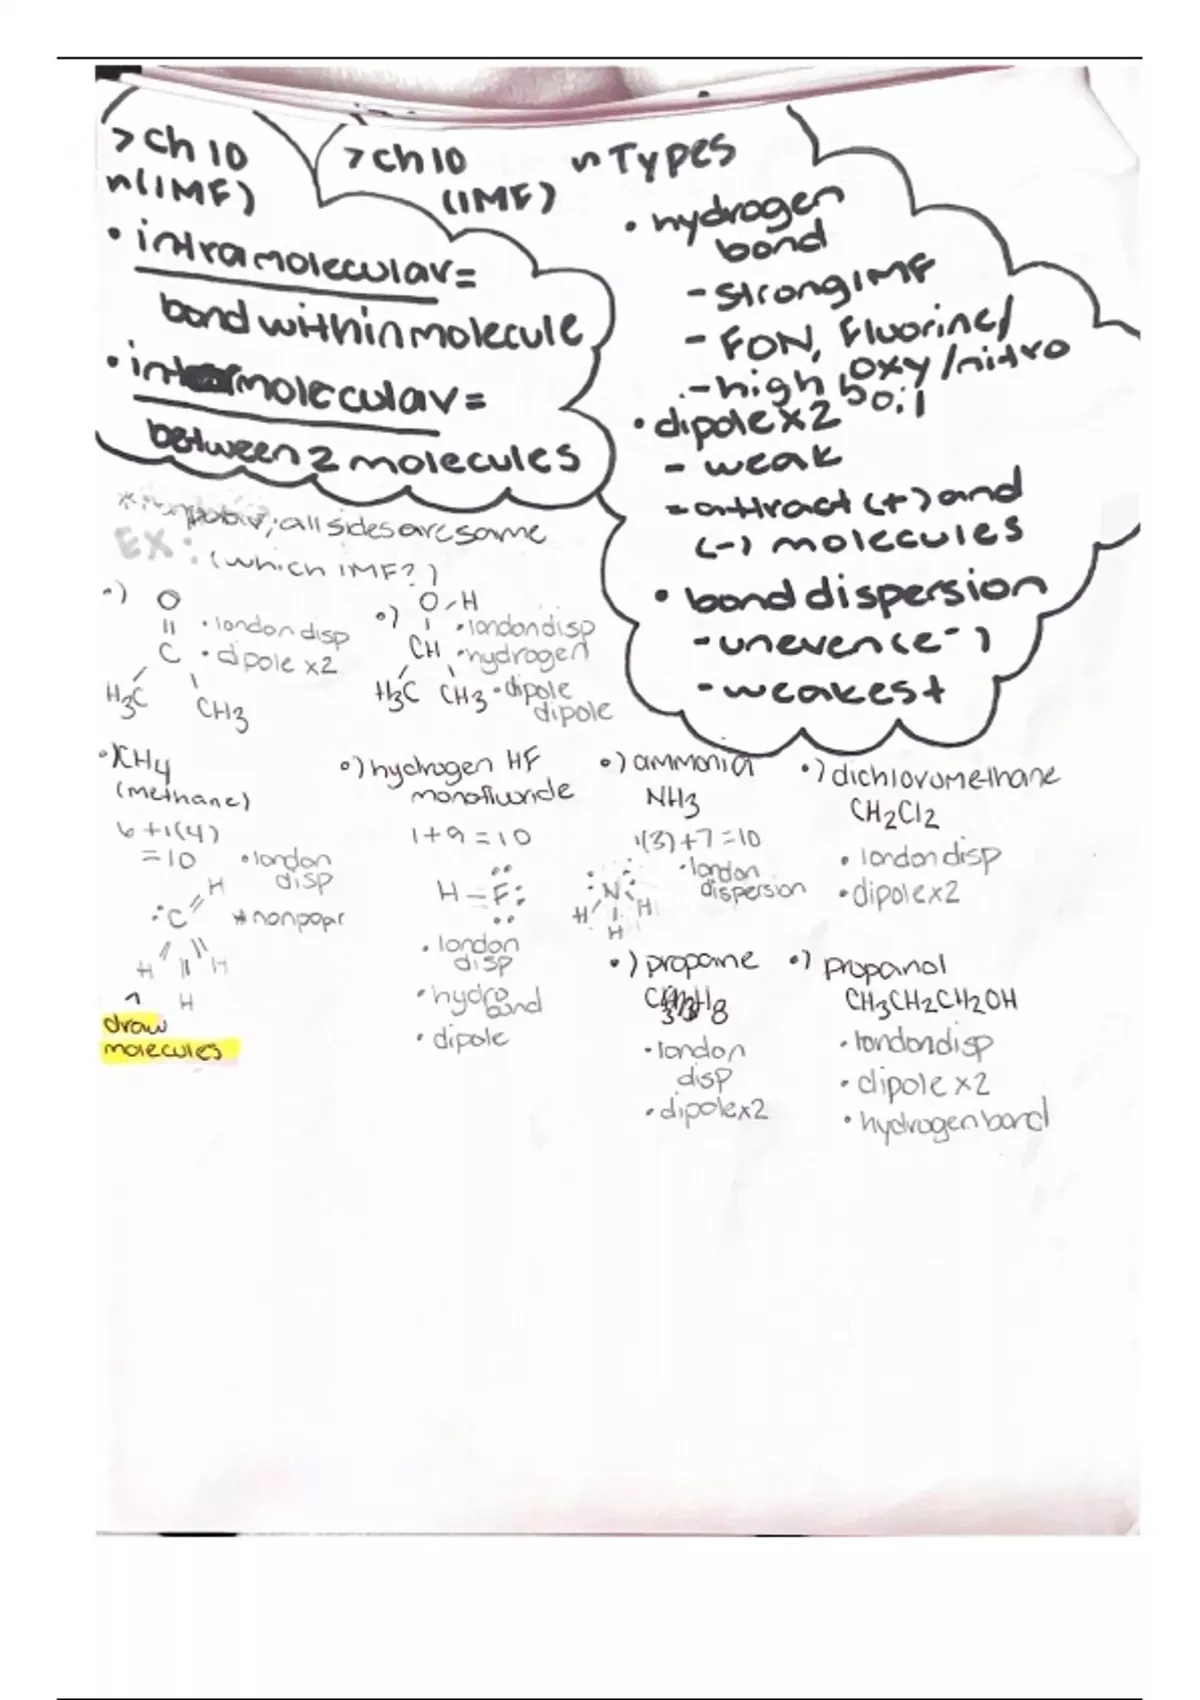 > Ch 10
n(IMF)
• intramolecular =
bond within molecule
• intermolecular =
between 2 molecules
> Ch 10
(IMF)
n Types
• hydrogen
bond
- strong IMF
- FON, Fluorine/
oxy/nitro
- high boil
• dipole x2
- weak
- attract (+) and
(-) molecules
• bond dispersion
- uneven (e-)
- weakest
all sides are same
EX:
(which IMF?)
•) O
|| • london disp
C • dipole x2
H3C CH3
•) O-H
• london disp
CH • hydrogen
H3C CH3 • dipole
dipole
•) CH4
(methane)
6+1(4)
=10
• london
disp
H
:C * nonpopar
H H
H
^
draw
molecules
•) hydrogen HF
monofluoride
1+9=10
H-F:
• london
disp
• hydro
bond
• dipole
•) ammonia
NH3
1(3)+7=10
• london
dispersion
N
H H
H
•) dichloromethane
CH2Cl2
• london disp
• dipole x2
•) propane
8
• london
disp
• dipole x2
•) propanol
CH3CH2CH2OH
• london disp
• dipole x2
• hydrogen bond